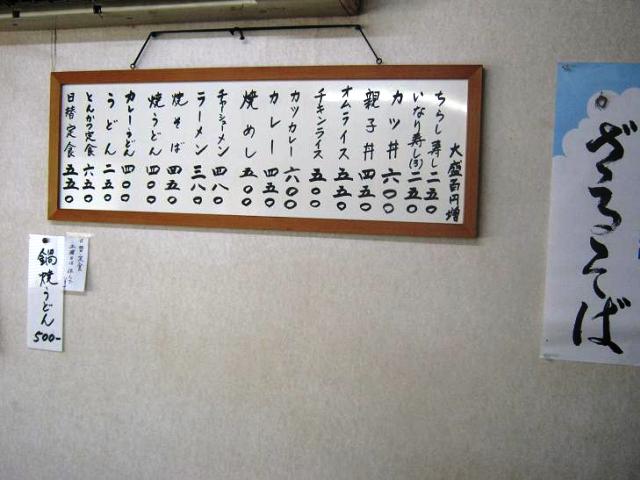 大盛百円増
ちらし寿し 二五〇
いなり寿し(3) 二五〇
カツ丼 六〇〇
親子丼 四五〇
オムライス 五五〇
チキンライス 五〇〇
カツカレー 六〇〇
カレー 四五〇
焼めし 五〇〇
チャーシューメン 四八〇
ラーメン 三八〇
焼そば 四五〇
焼うどん 四〇〇
カレーうどん 四〇〇
うどん 二五〇
とんかつ定食 六五〇
日替定食 五五〇
ざるそば
日替定食
鍋焼うどん
500-